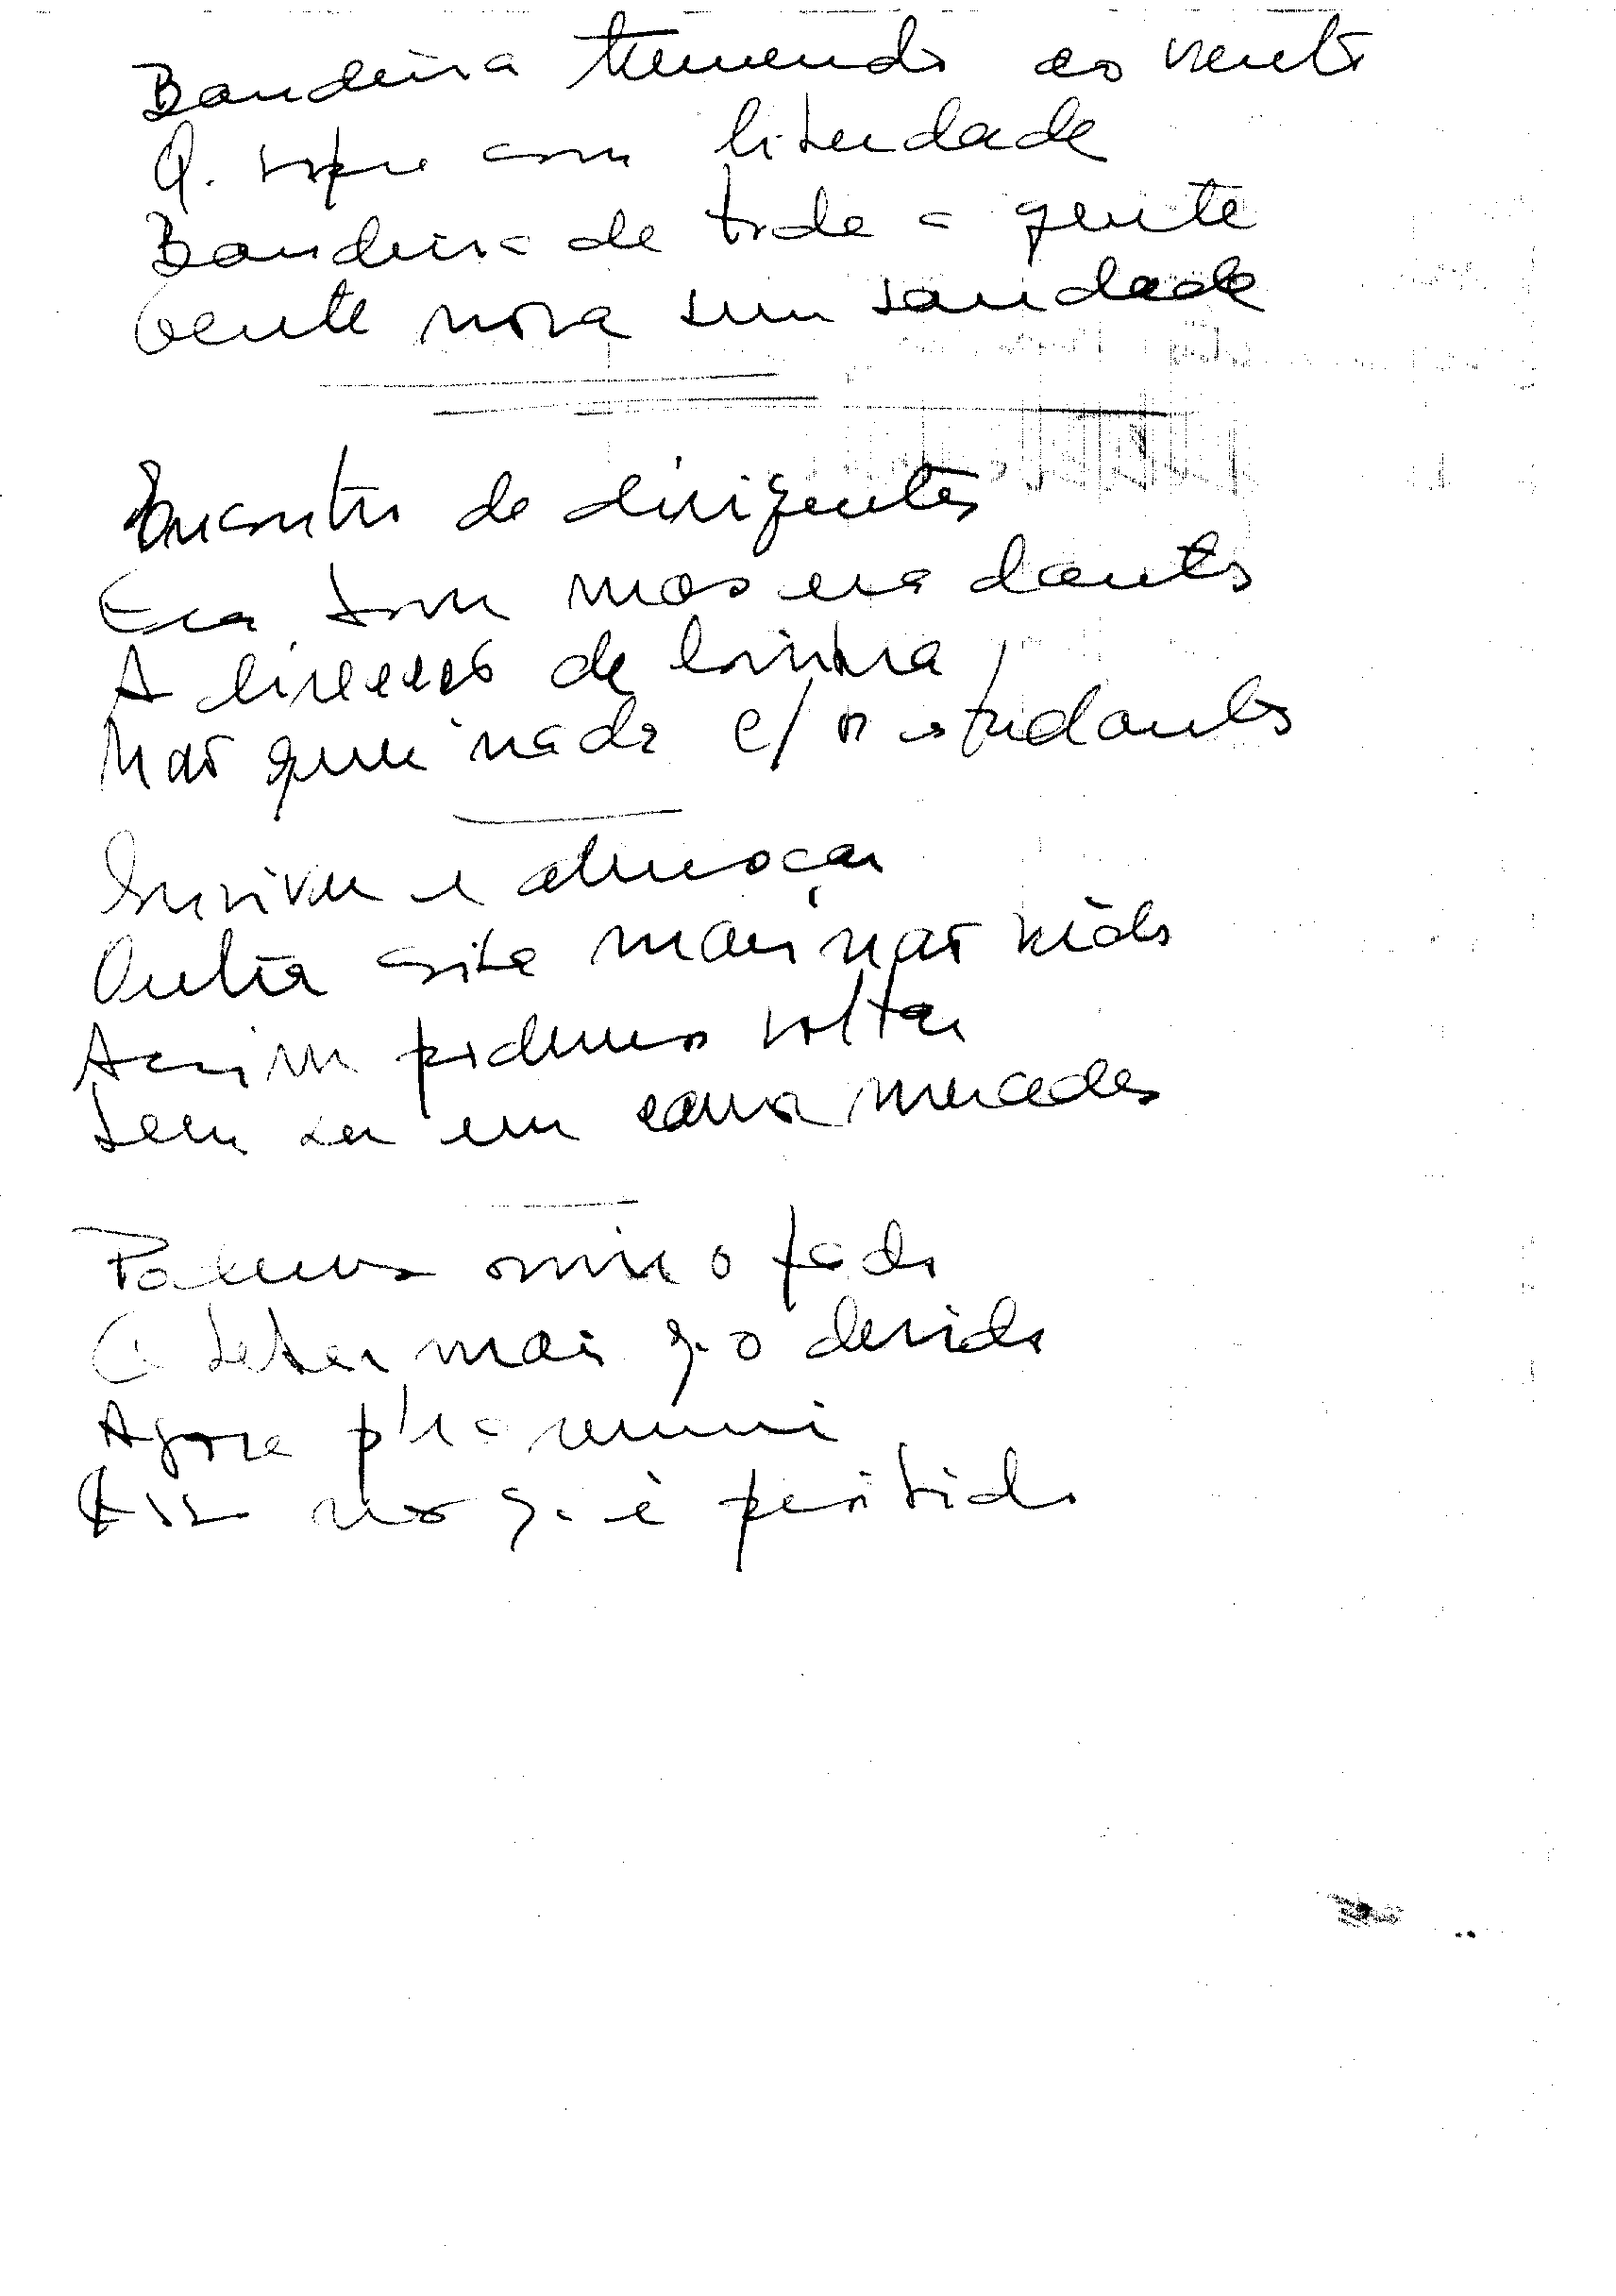 Bandeira tremendo ao vento
Q. sopre com liberdade
Bandeira de toda a gente
Gente nova sem saudade
Encontro de dirigentes
Era bom mas era dantes
A direcção de Coimbra
Não quer nada c/ os estudantes
Conviver e almoçar
Outra coisa mais não
Assim podemos voltar
Sem ser em carro mercedes
Palerma ouvir o fado
E beber mais q. o devido
Agora p'ra reunir
Isso não q. é proibido